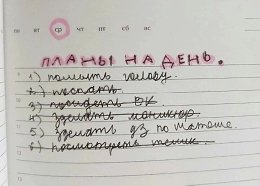 пн вт ср чт пт сб вс
ПЛАНЫ НА ДЕНЬ.
1) помыть голову.
2) поспать
3) пройдеть ВК
4) зделать маникюр
5) зделать дз по матеше.
6) посмотреть телик.